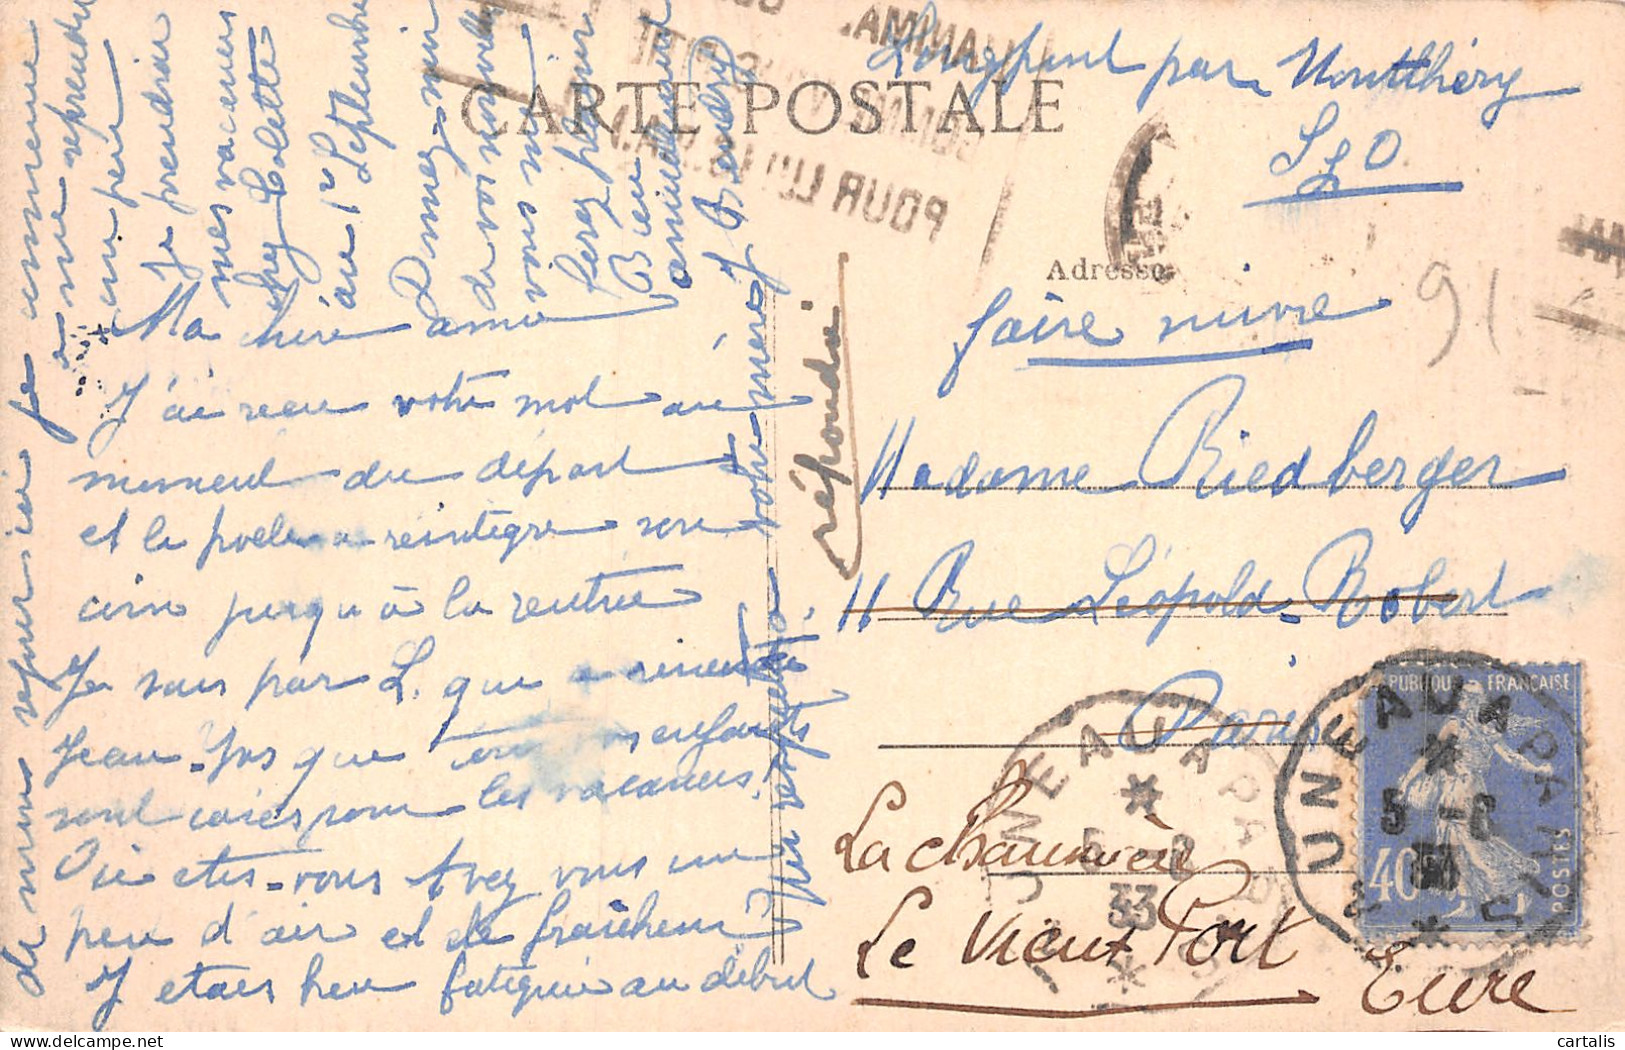 CARTE POSTALE
Adresse
Longpont par Montlhéry
S & O
faire suivre
Madame Riedberger
11 Rue Léopold-Robert
Paris
La Chaumière
Le Vieux Port
Eure
répondu
91
RÉPUBLIQUE FRANÇAISE
40
POSTES
UNEAU A PARIS
5 - 8
33
POUR LUI
Ma chère amie
J'ai reçu votre mot au
moment du départ
et la poele a reintegre son
jusqu'à la rentrée
Je sais par L. que
Jean-Yves que vos enfants
sont casés pour les vacances.
Où etes-vous Avez vous un
peu d'air et de fraîcheur?
J'etais bien fatiguée au début
de mon séjour ici je commence
à me reprendre
un peu
Je prendrai
mes vacances
chez Colette
au 1er Septembre
Donnez-moi
de vos nouvelles
vous me
ferez plaisir
Bien
amicalement